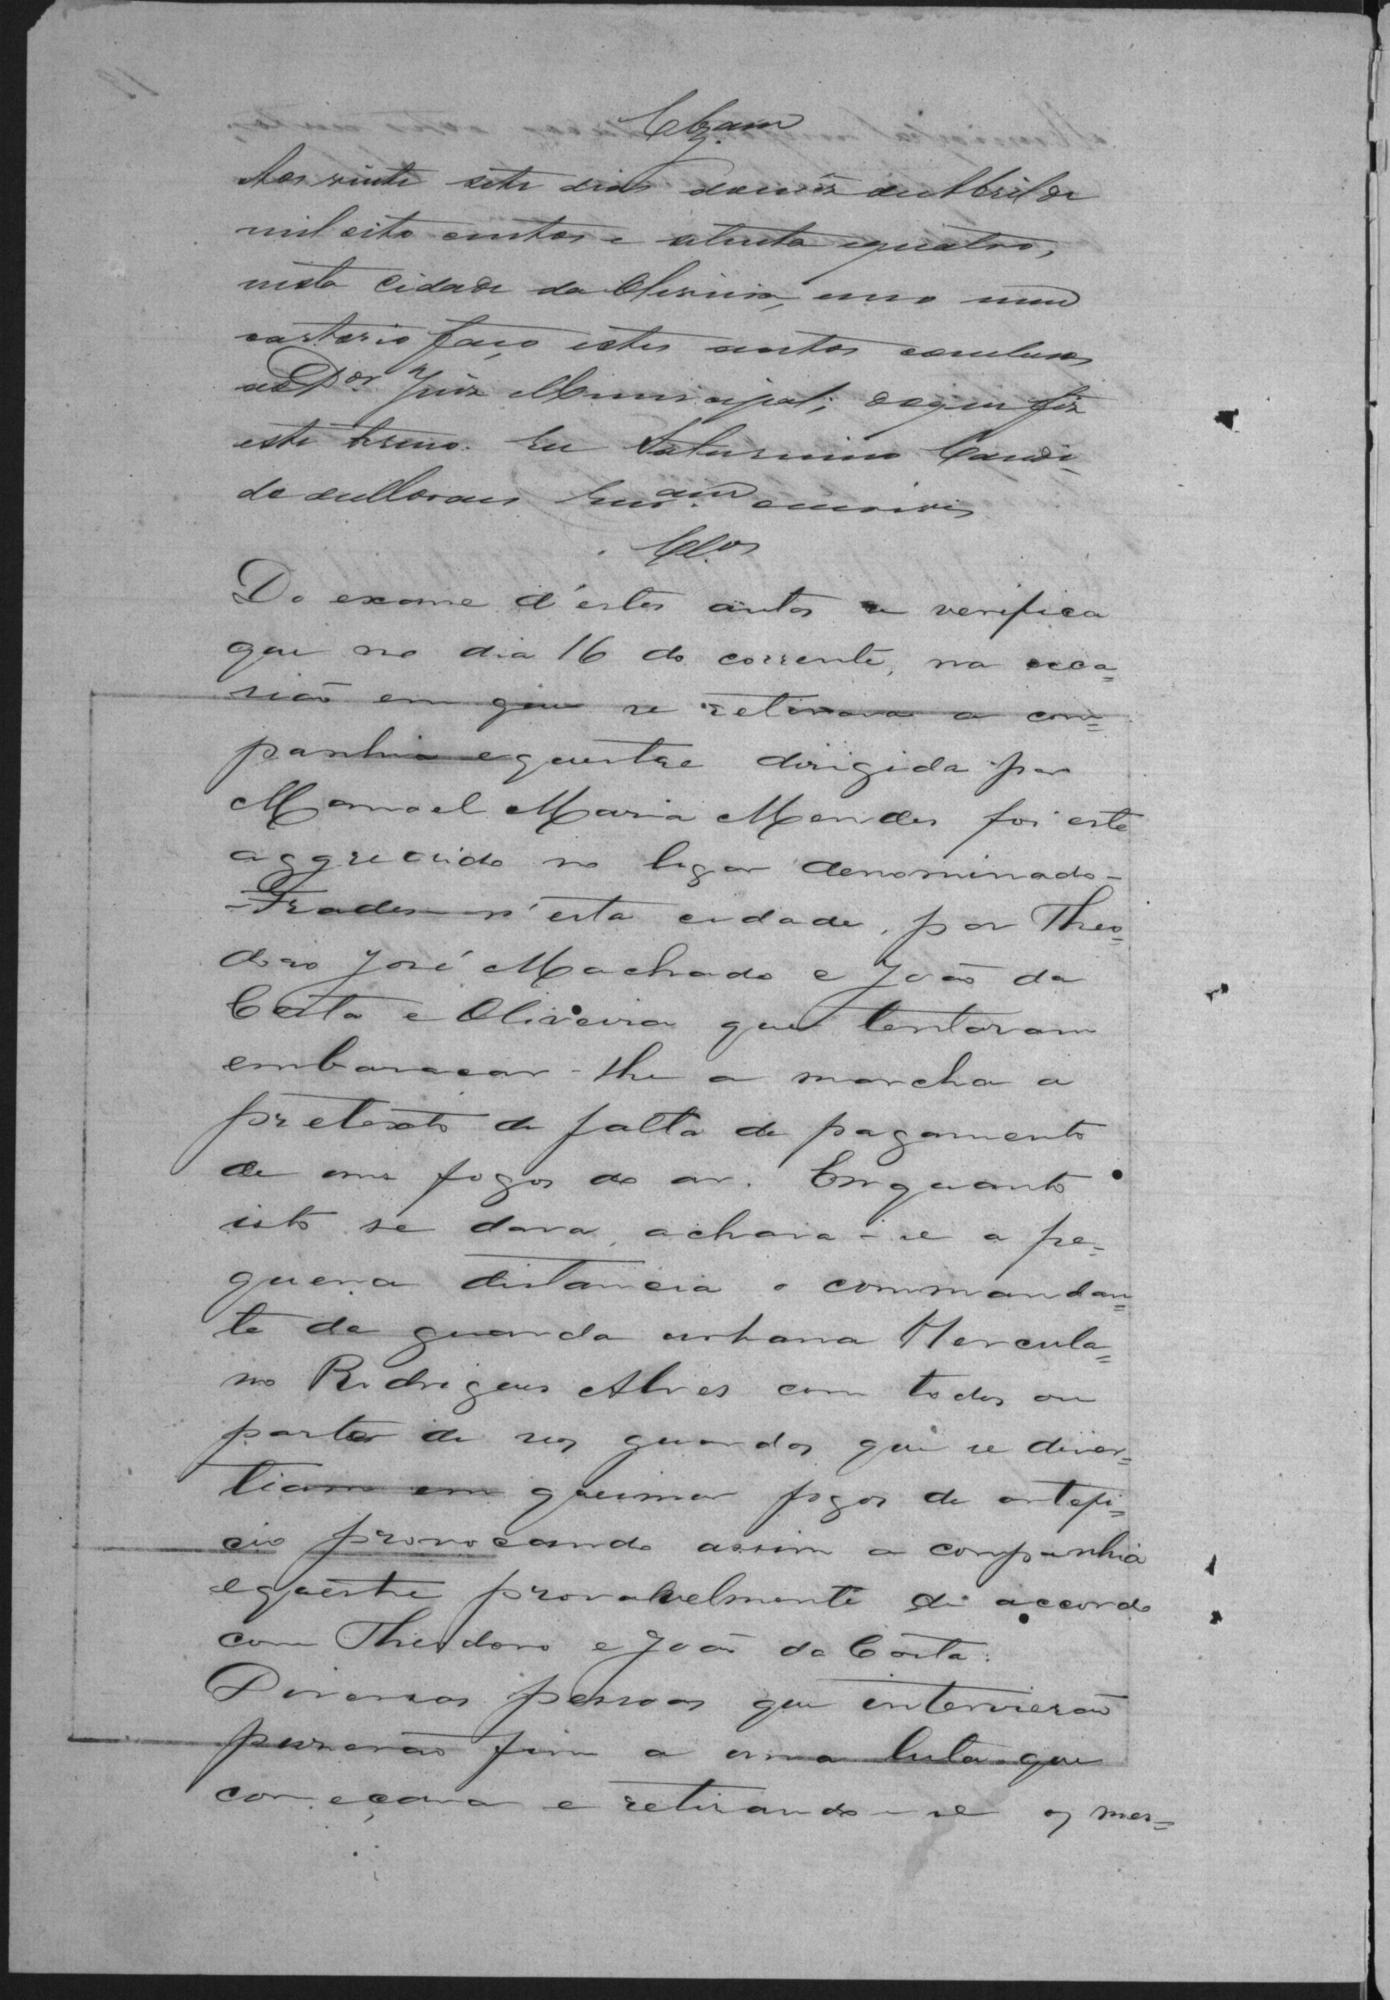 Clzam
Aos vinte sete dias do mêz de Abril de
mil oito centos e oitenta e quatro,
nésta Cidade da Oliveira, em o meu
cartorio faço estes autos concluzos
ao Dor Juiz Municipal; do que fiz
este termo. Eu Saturnino Candi-
do de Moraes escrivão escrevi
Clos
Do exame d'estes autos se verifica
que no dia 16 do corrente, na occa=
sião em que se retirava a com=
panhia equestre dirigida por
Manoel Maria Mendes foi este
aggredido no lugar denominado-
-Frades- n'esta cidade, por Theo=
doro José Machado e João da
Costa e Oliveira que tentaram
embaraçar-lhe a marcha a
pretexto de falta de pagamento
de uns fogos do ar. Emquanto
isto se dava, achava-se a pe=
quena distancia o commandan=
te da guarda urbana Hercula=
no Rodrigues Alves com todos ou
parte de seos guardas que se diver=
tiam em queimar fogos de artefi=
cio provocando assim a companhia
equestre provavelmente de accordo
com Theodoro e João da Costa.
Diversas pessoas que intervierão
puzerão fim a uma luta que
começava e retirando-se os mes=